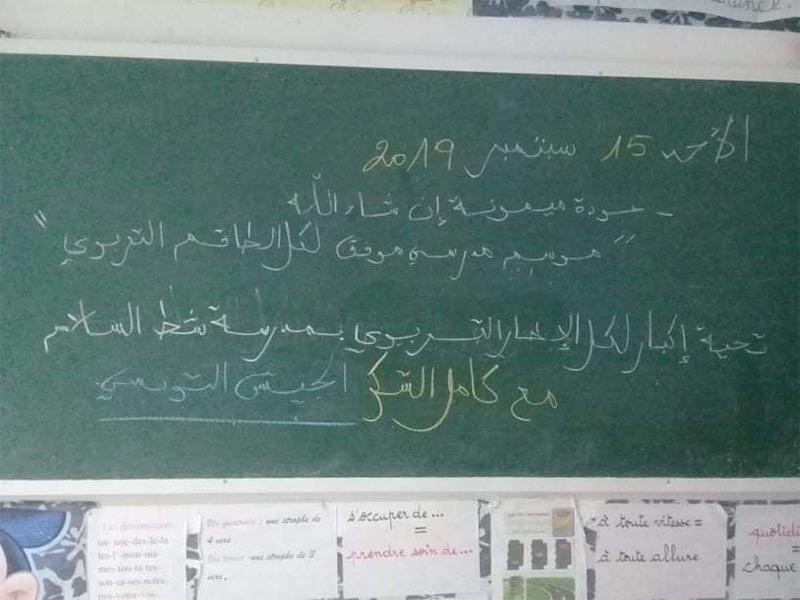 الأحد 15 سبتمبر 2019
- عودة ميمونة إن شاء الله
" موسم مدرسي موفق لكل الطاقم التربوي "
تحية إكبار لكل الإطار التربوي بمدرسة شط السلام
مع كامل الشكر الجيش التونسي
Les déterminants
un-une-des-le-la
les-l'-mon-ma-
mes-ton-ta-tes-
son-sa-ses-notre-
Un quatrain : une strophe de
4 vers.
Un tercet : une strophe de 3
vers.
s'occuper de...
=
prendre soin de...
à toute vitesse =
à toute allure
quotidi
=
chaque